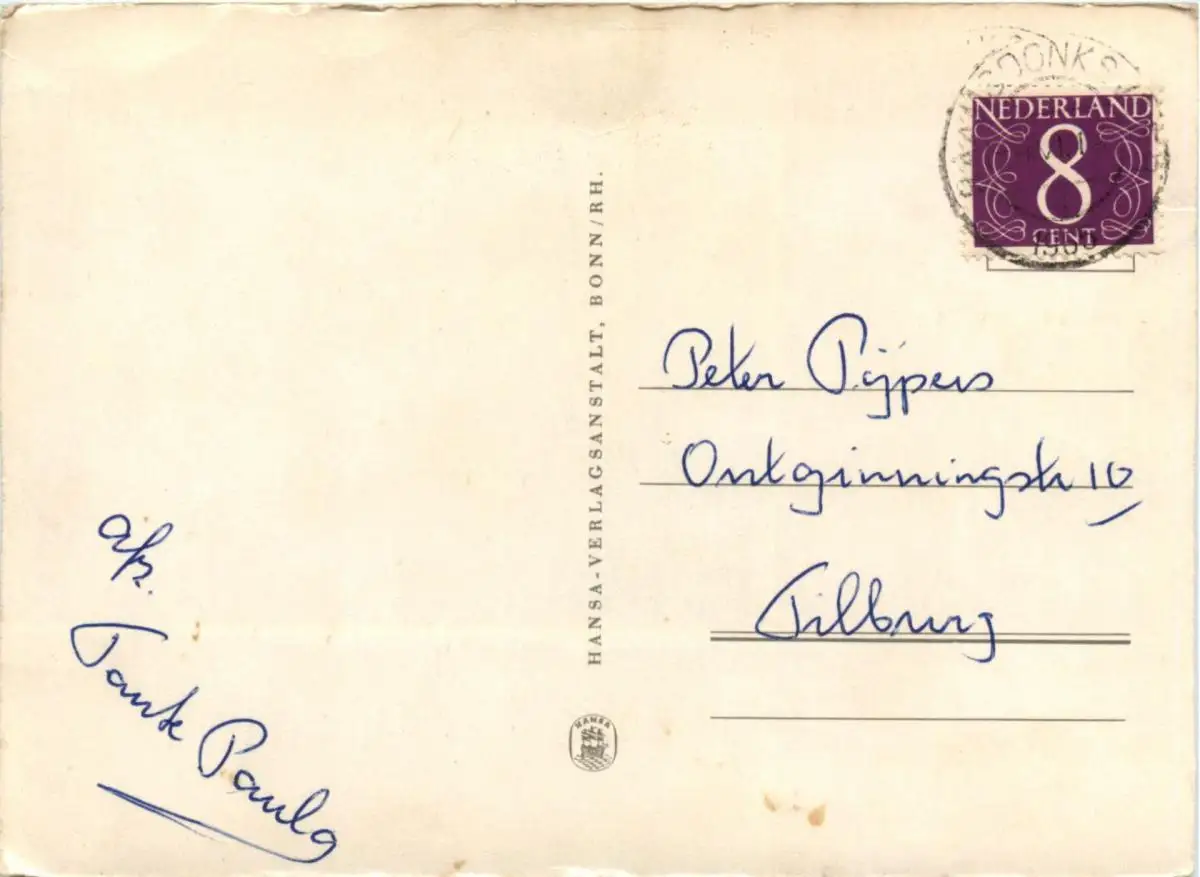 NEDERLAND
8
CENT
HANSA-VERLAGSANSTALT, BONN/RH.
HANSA
Peter Pijpers
Ontginningstr 10
Tilburg
afz.
Tante Paula